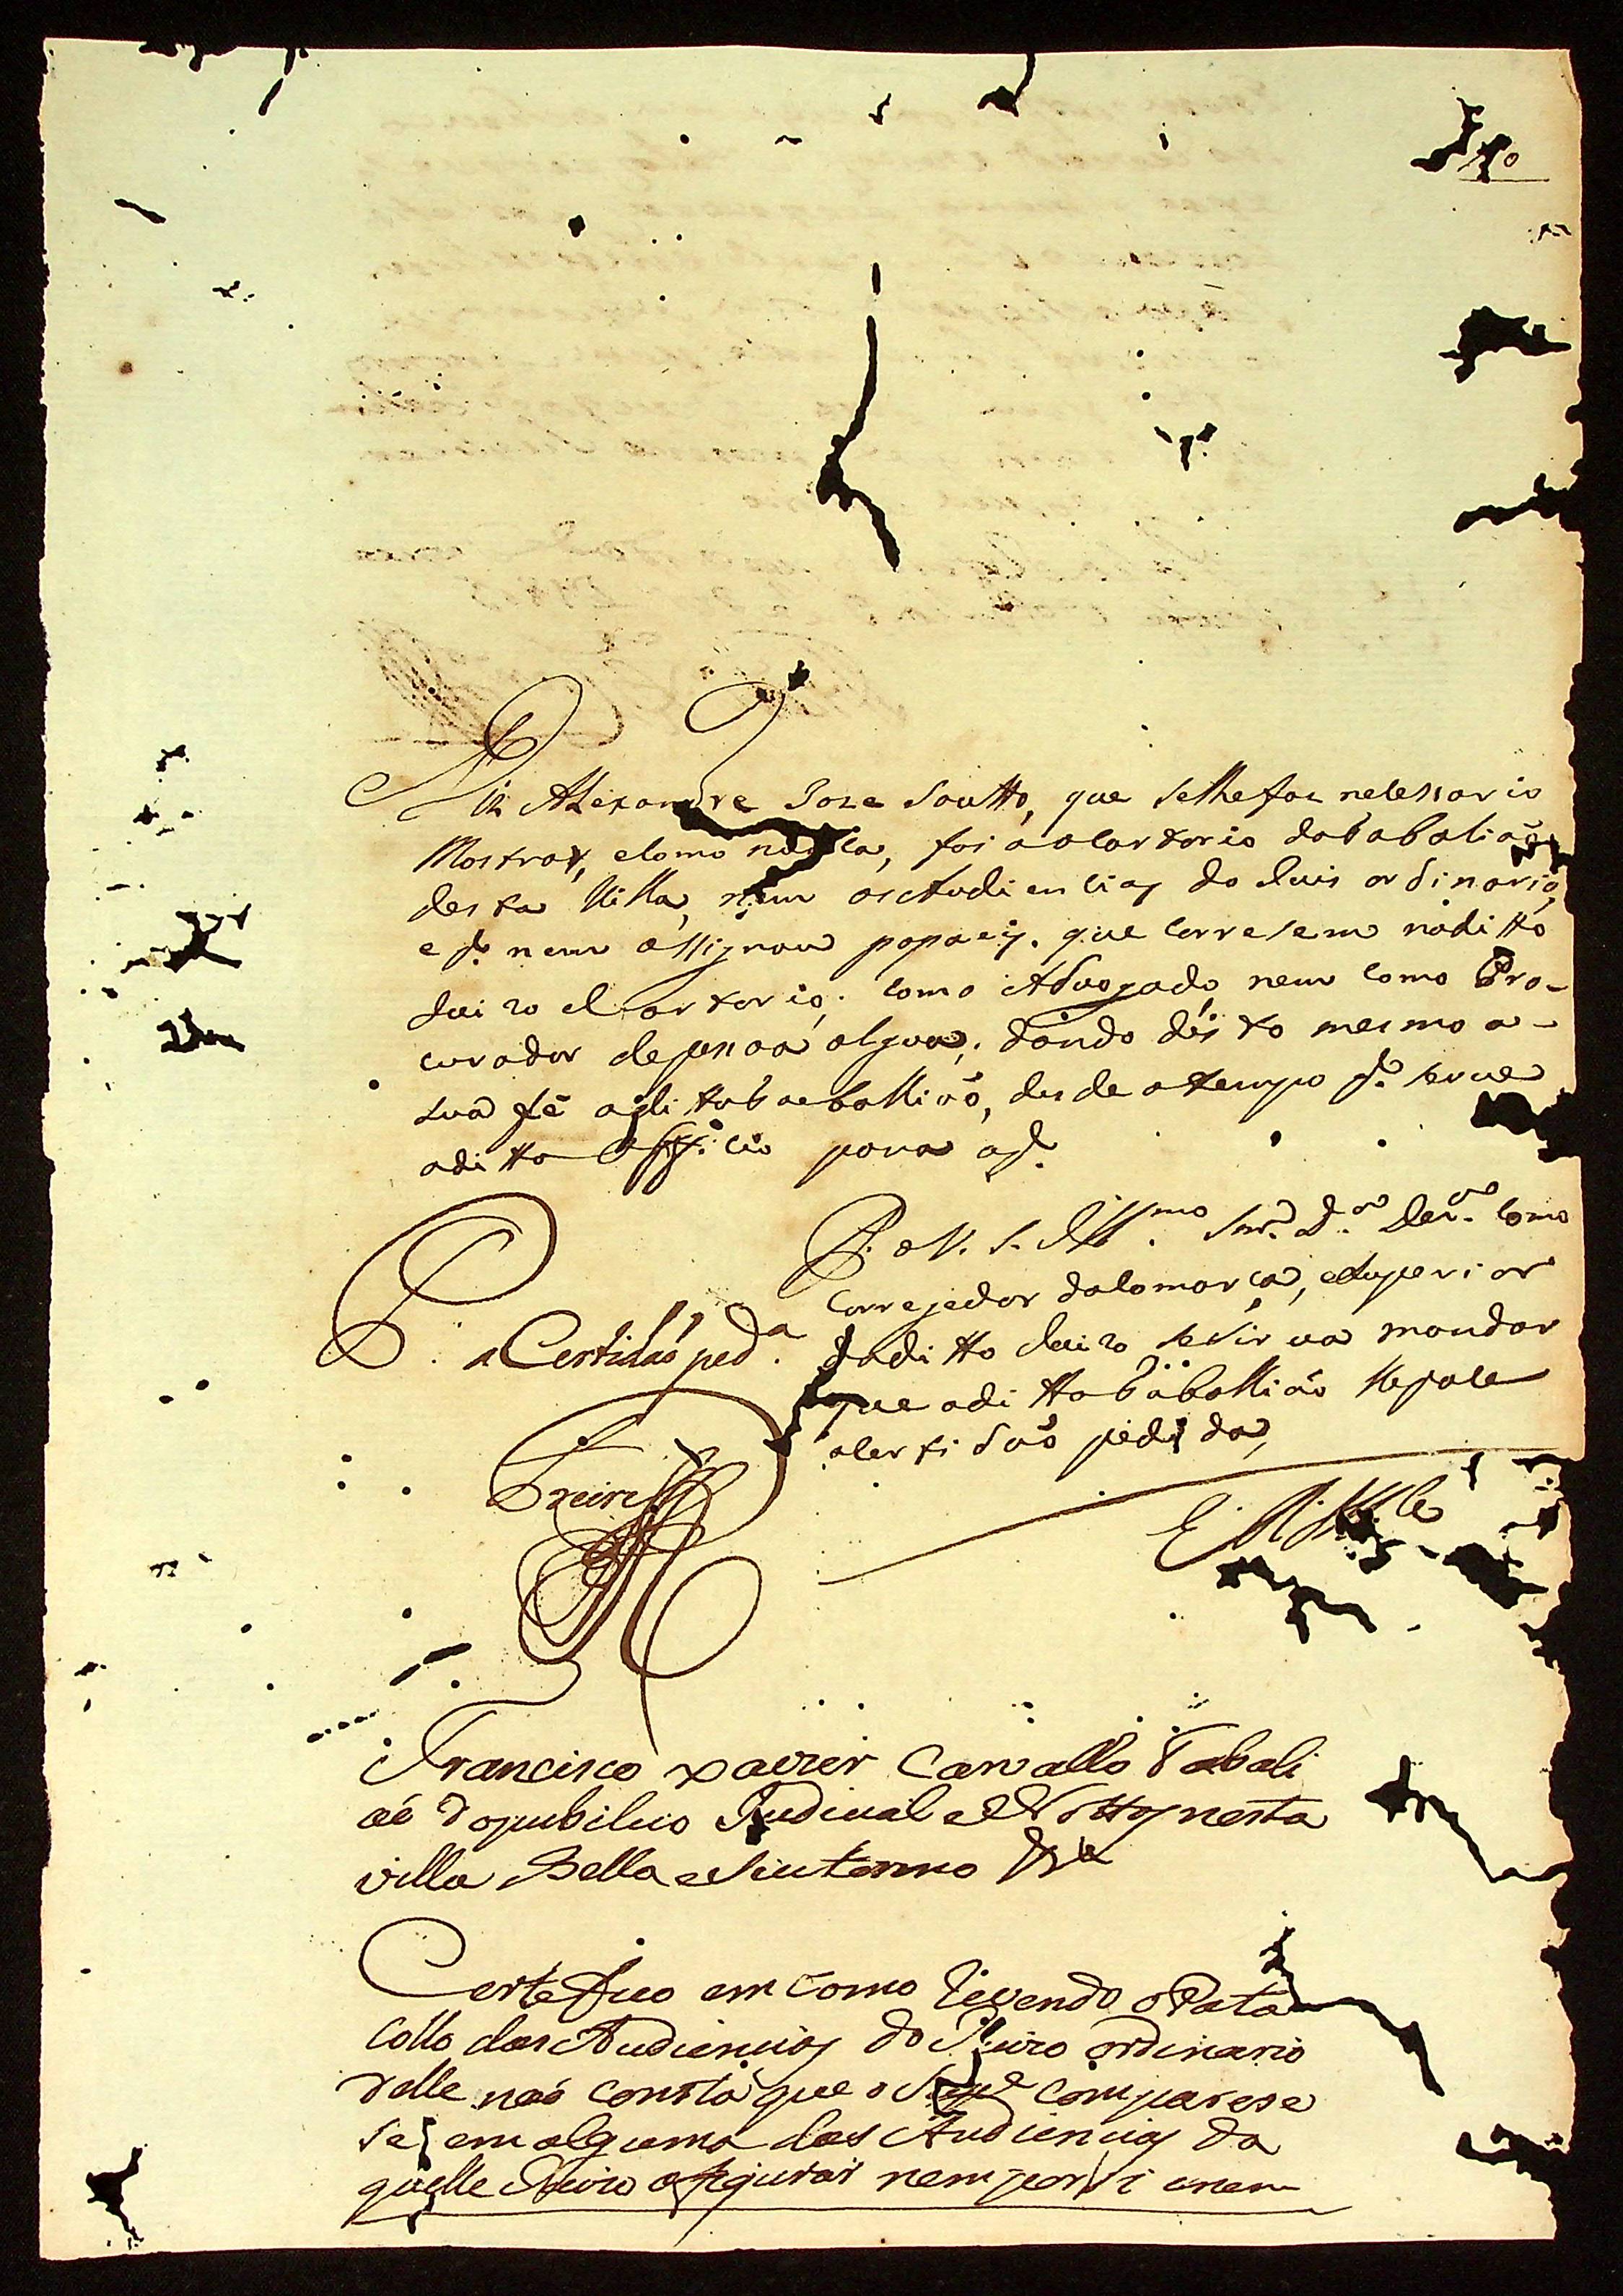 10
Dis Alexandre Joze Soutto, que selhefas nelessario
Mostrar, elomo nunca, foi aolartorio dotabaliaõ
desta Villa, nem as Audienlias do Juis ordinario,
e p.ª nem assignou papaeis. que corresem nodi tto
Juizo elartorio; como Advogado, nem como Pro-
curador depesoa algua; dando disto mesmo a-
sua fé odi ttotabaelliaõ, desde otempo q. serue
adi tto Offi.cio para oq.
P. a V. S. Ill.mo Snr. D.or Dez.or como
Corregedor dalomarca, eSuperior
P. a Certidaõ ped.da doditto Juizo, sesirua mandar
que odi ttotaballiaõ lhepase
alertidaõ pedida,
Freire
E. R. M.ce
Francisco xavier Carvallo Tabali
aõ dopubilico Judicial eNottas nesta
villa Bella eSeutermo &.ª
Certefico em como Revendo oPoto
collo das Audiencias do Juizo ordinario
delle naõ consta que o Supp.e comparese
se em alguma das Audiencias da
quelle Juizo apegurar nem por si enem